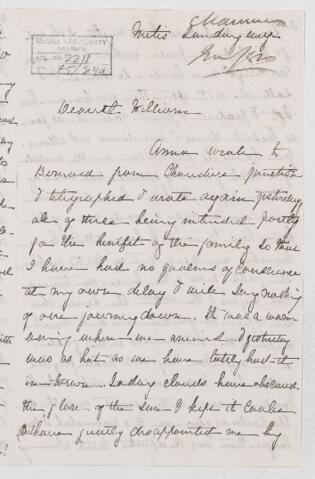 McGILL UNIVERSITY
ARCHIVES
ACC. NO. 2211
REF.
Metis Sunday eve
Dearest William
Anna wrote to
Bernard from Chaudiere junction
I telegraphed I wrote again yesterday
all of these being intended partly
for the benefit of the family so that
I have had no qualms of conscience
at my own delay I will say nothing
of our journey down. It was a warm
evening when we arrived & yesterday
was as hot as we have lately had it
in town. Today clouds have obscured
the glare of the sun & kept it cooler
have greatly disappointed me by